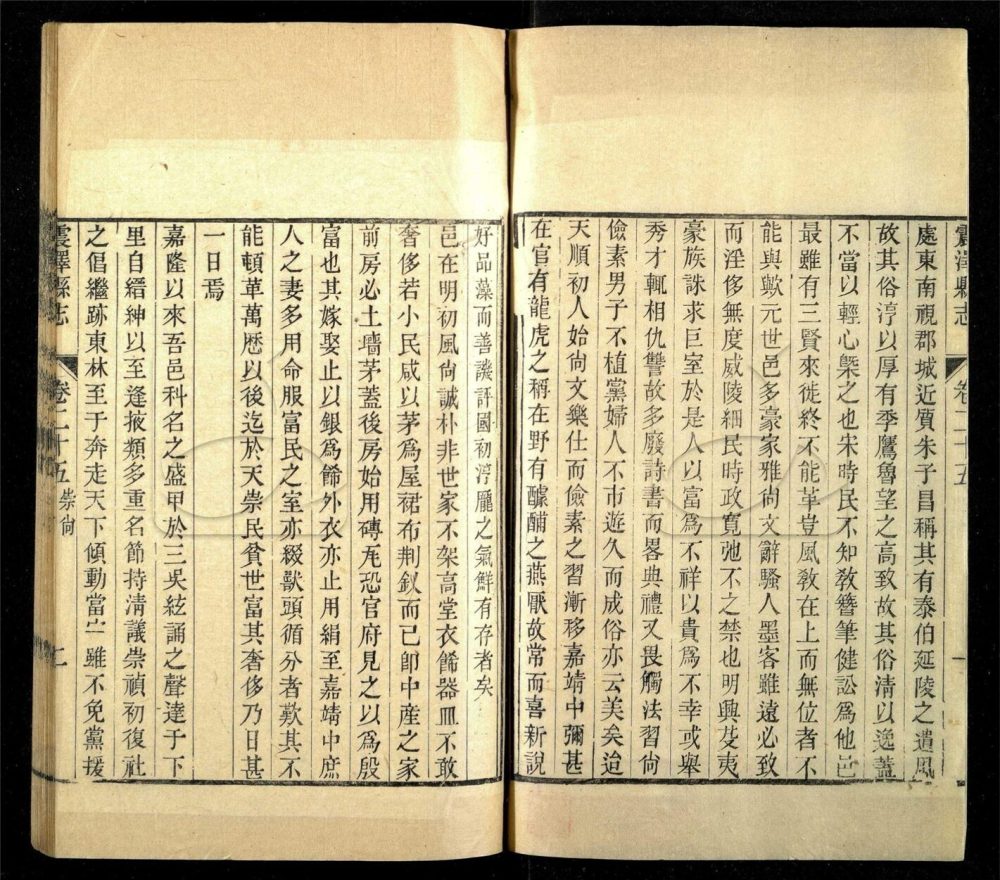 震澤縣志
卷二十五
一
處東南視郡城近質朱子昌稱其有泰伯延陵之遺風
故其俗淳以厚有季鷹魯望之高致故其俗清以逸蓋
不當以輕心槩之也宋時民不知敎簪筆健訟爲他邑
最雖有三賢來徙終不能革豈風敎在上而無位者不
能與歟元世邑多豪家雅尙文辭騷人墨客雖遠必致
而淫侈無度威陵細民時政寬弛不之禁也明興芟夷
豪族誅求巨室於是人以富爲不祥以貴爲不幸或舉
秀才輒相仇讐故多廢詩書而畧典禮又畏觸法習尙
儉素男子不植黨婦人不市遊久而成俗亦云美矣迨
天順初人始尙文樂仕而儉素之習漸移嘉靖中彌甚
在官有龍虎之稱在野有醵酺之燕厭故常而喜新說
好品藻而善譏評國初淳龐之氣鮮有存者矣
邑在明初風尙誠朴非世家不架高堂衣餙器皿不敢
奢侈若小民咸以茅爲屋裙布荆釵而已卽中産之家
前房必土墻茅蓋後房始用磚瓦恐官府見之以爲殷
富也其嫁娶止以銀爲餙外衣亦止用絹至嘉靖中庶
人之妻多用命服富民之室亦綴獸頭循分者歎其不
能頓革萬歷以後迄於天崇民貧世富其奢侈乃日甚
一日焉
嘉隆以來吾邑科名之盛甲於三吳絃誦之聲達于下
里自縉紳以至逢掖類多重名節持淸議崇禎初復社
之倡繼跡東林至于奔走天下傾動當世雖不免黨援
震澤縣志
卷二十五
崇尙
二